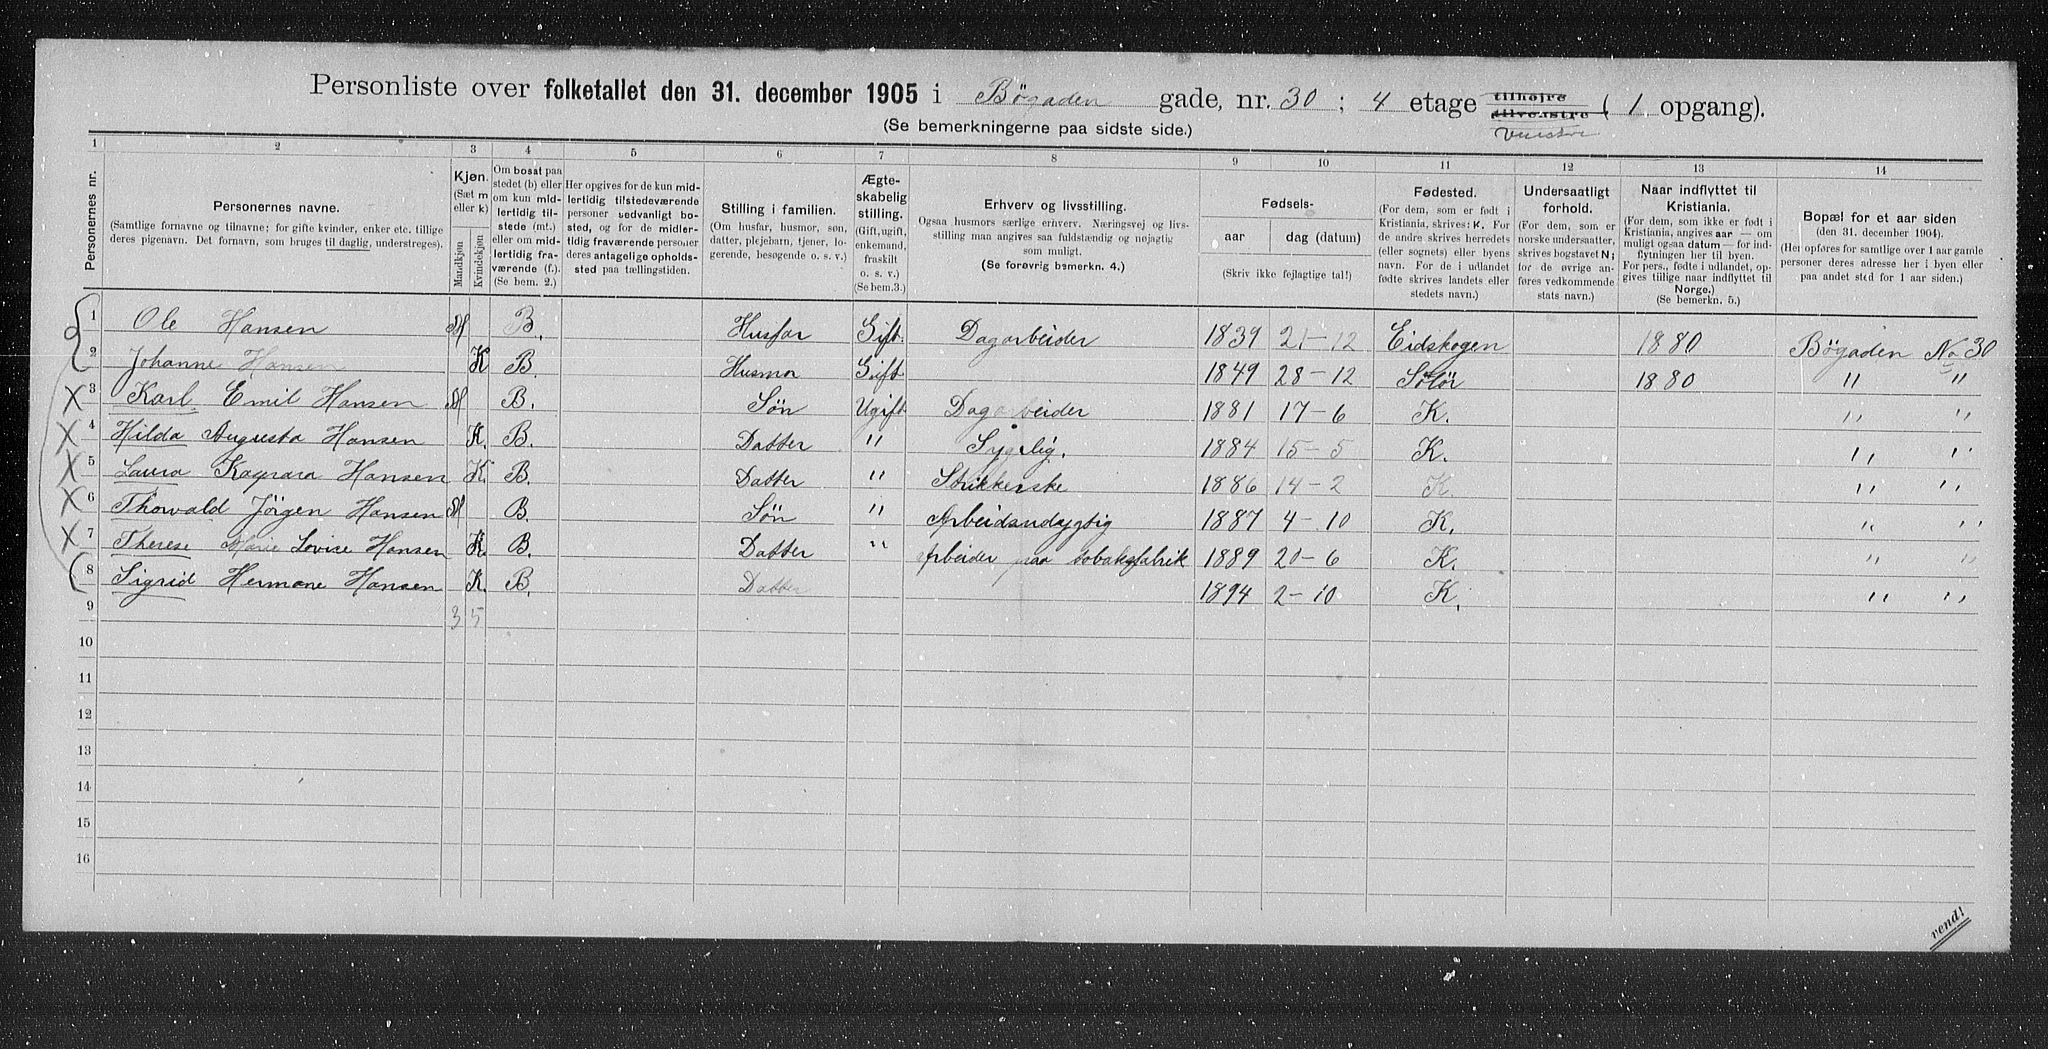 Personliste over folketallet den 31. december 1905 i Bøgaden gade, nr. 30 ; 4 etage tilhøjre tilvenstre ( 1 opgang).
Venstre
(Se bemerkningerne paa sidste side.)
1 2 3 4 5 6 7 8 9 10 11 12 13 14
Personernes nr.
Personernes navne.
(Samtlige fornavne og tilnavne; for gifte kvinder, enker etc. tillige
deres pigenavn. Det fornavn, som bruges til daglig, understreges).
Kjøn.
(Sæt m
eller k)
Mandkjøn
Kvindekjøn
Om bosat paa
stedet (b) eller
om kun mid-
lertidig til-
stede (mt.)
eller om mid-
lertidig fra-
værende (f.).
(Se bem. 2.)
Her opgives for de kun mid-
lertidig tilstedeværende
personer sedvanligt bo-
sted, og for de midler-
tidig fraværende personer
deres antagelige opholds-
sted paa tællingstiden.
Stilling i familien.
(Om husfar, husmor, søn,
datter, plejebarn, tjener, lo-
gerende, besøgende o. s. v.)
Ægte-
skabelig
stilling.
(Gift, ugift,
enkemand,
fraskilt
o. s. v.)
(Se bem.3.)
Erhverv og livsstilling.
Ogsaa husmors særlige erhverv. Næringsvej og livs-
stilling man angives saa fuldstændig og nøjagtig
som muligt.
(Se forøvrig bemerkn. 4.)
Fødsels-
aar dag (datum)
(Skriv ikke fejlagtige tal!)
Fødested.
(For dem, som er født i
Kristiania, skrives: K. For
de andre skrives herredets
(eller sognets) eller byens
navn. For de i udlandet
fødte skrives landets eller
stedets navn.)
Undersaatligt
forhold.
(For dem, som er
norske undersaatter,
skrives bogstavet N;
for de øvrige an-
føres vedkommende
stats navn.)
Naar indflyttet til
Kristiania.
(For dem, som ikke er født i
Kristiania, angives aar — om
muligt ogsaa datum — for ind-
flytningen her til byen.
For pers., født i udlandet, op-
gives tillige naar indflyttet til
Norge.)
(Se bemerkn. 5.)
Bopæl for et aar siden
(den 31. december 1904).
(Her opføres for samtlige over 1 aar gamle
personer deres adresse her i byen eller
paa andet sted for 1 aar siden.)
1 Ole Hansen M B. Husfar Gift Dagarbeider 1839 21-12 Eidskogen 1880 Bøgaden No 30
2 Johanne Hansen K B. Husmor Gift 1849 28-12 Solør 1880 " "
3 Karl Emil Hansen M B. Søn Ugift Dagarbeider 1881 17-6 K. " "
4 Hilda Augusta Hansen K. B. Datter " 1884 15-5 K. " "
5 Laura Kaspara Hansen K. B. Datter " Strikkerske 1886 14-2 K " "
6 Thorvald Jörgen Hansen M B. Søn " Arbeidsudygtig 1887 4-10 K. " "
7 Therese Marie Lovise Hansen K. B. Datter " Arbeider paa tobaksfabrik 1889 20-6 K. " "
8 Sigrid Hermane Hansen K. B. Datter 1894 2-10 K. " "
9 3 5
10
11
12
13
14
15
16
vend!